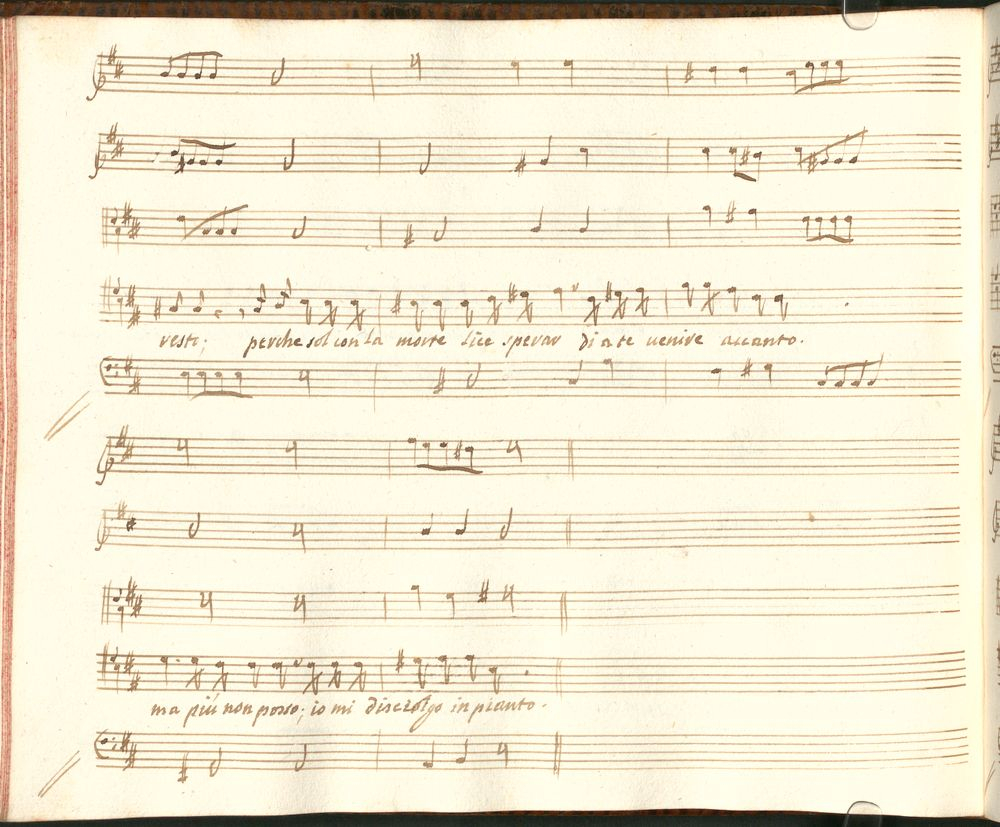 resto; perche sol con la morte lice sperar di a te venire accanto.
ma più non posso; io mi disciolgo in pianto.